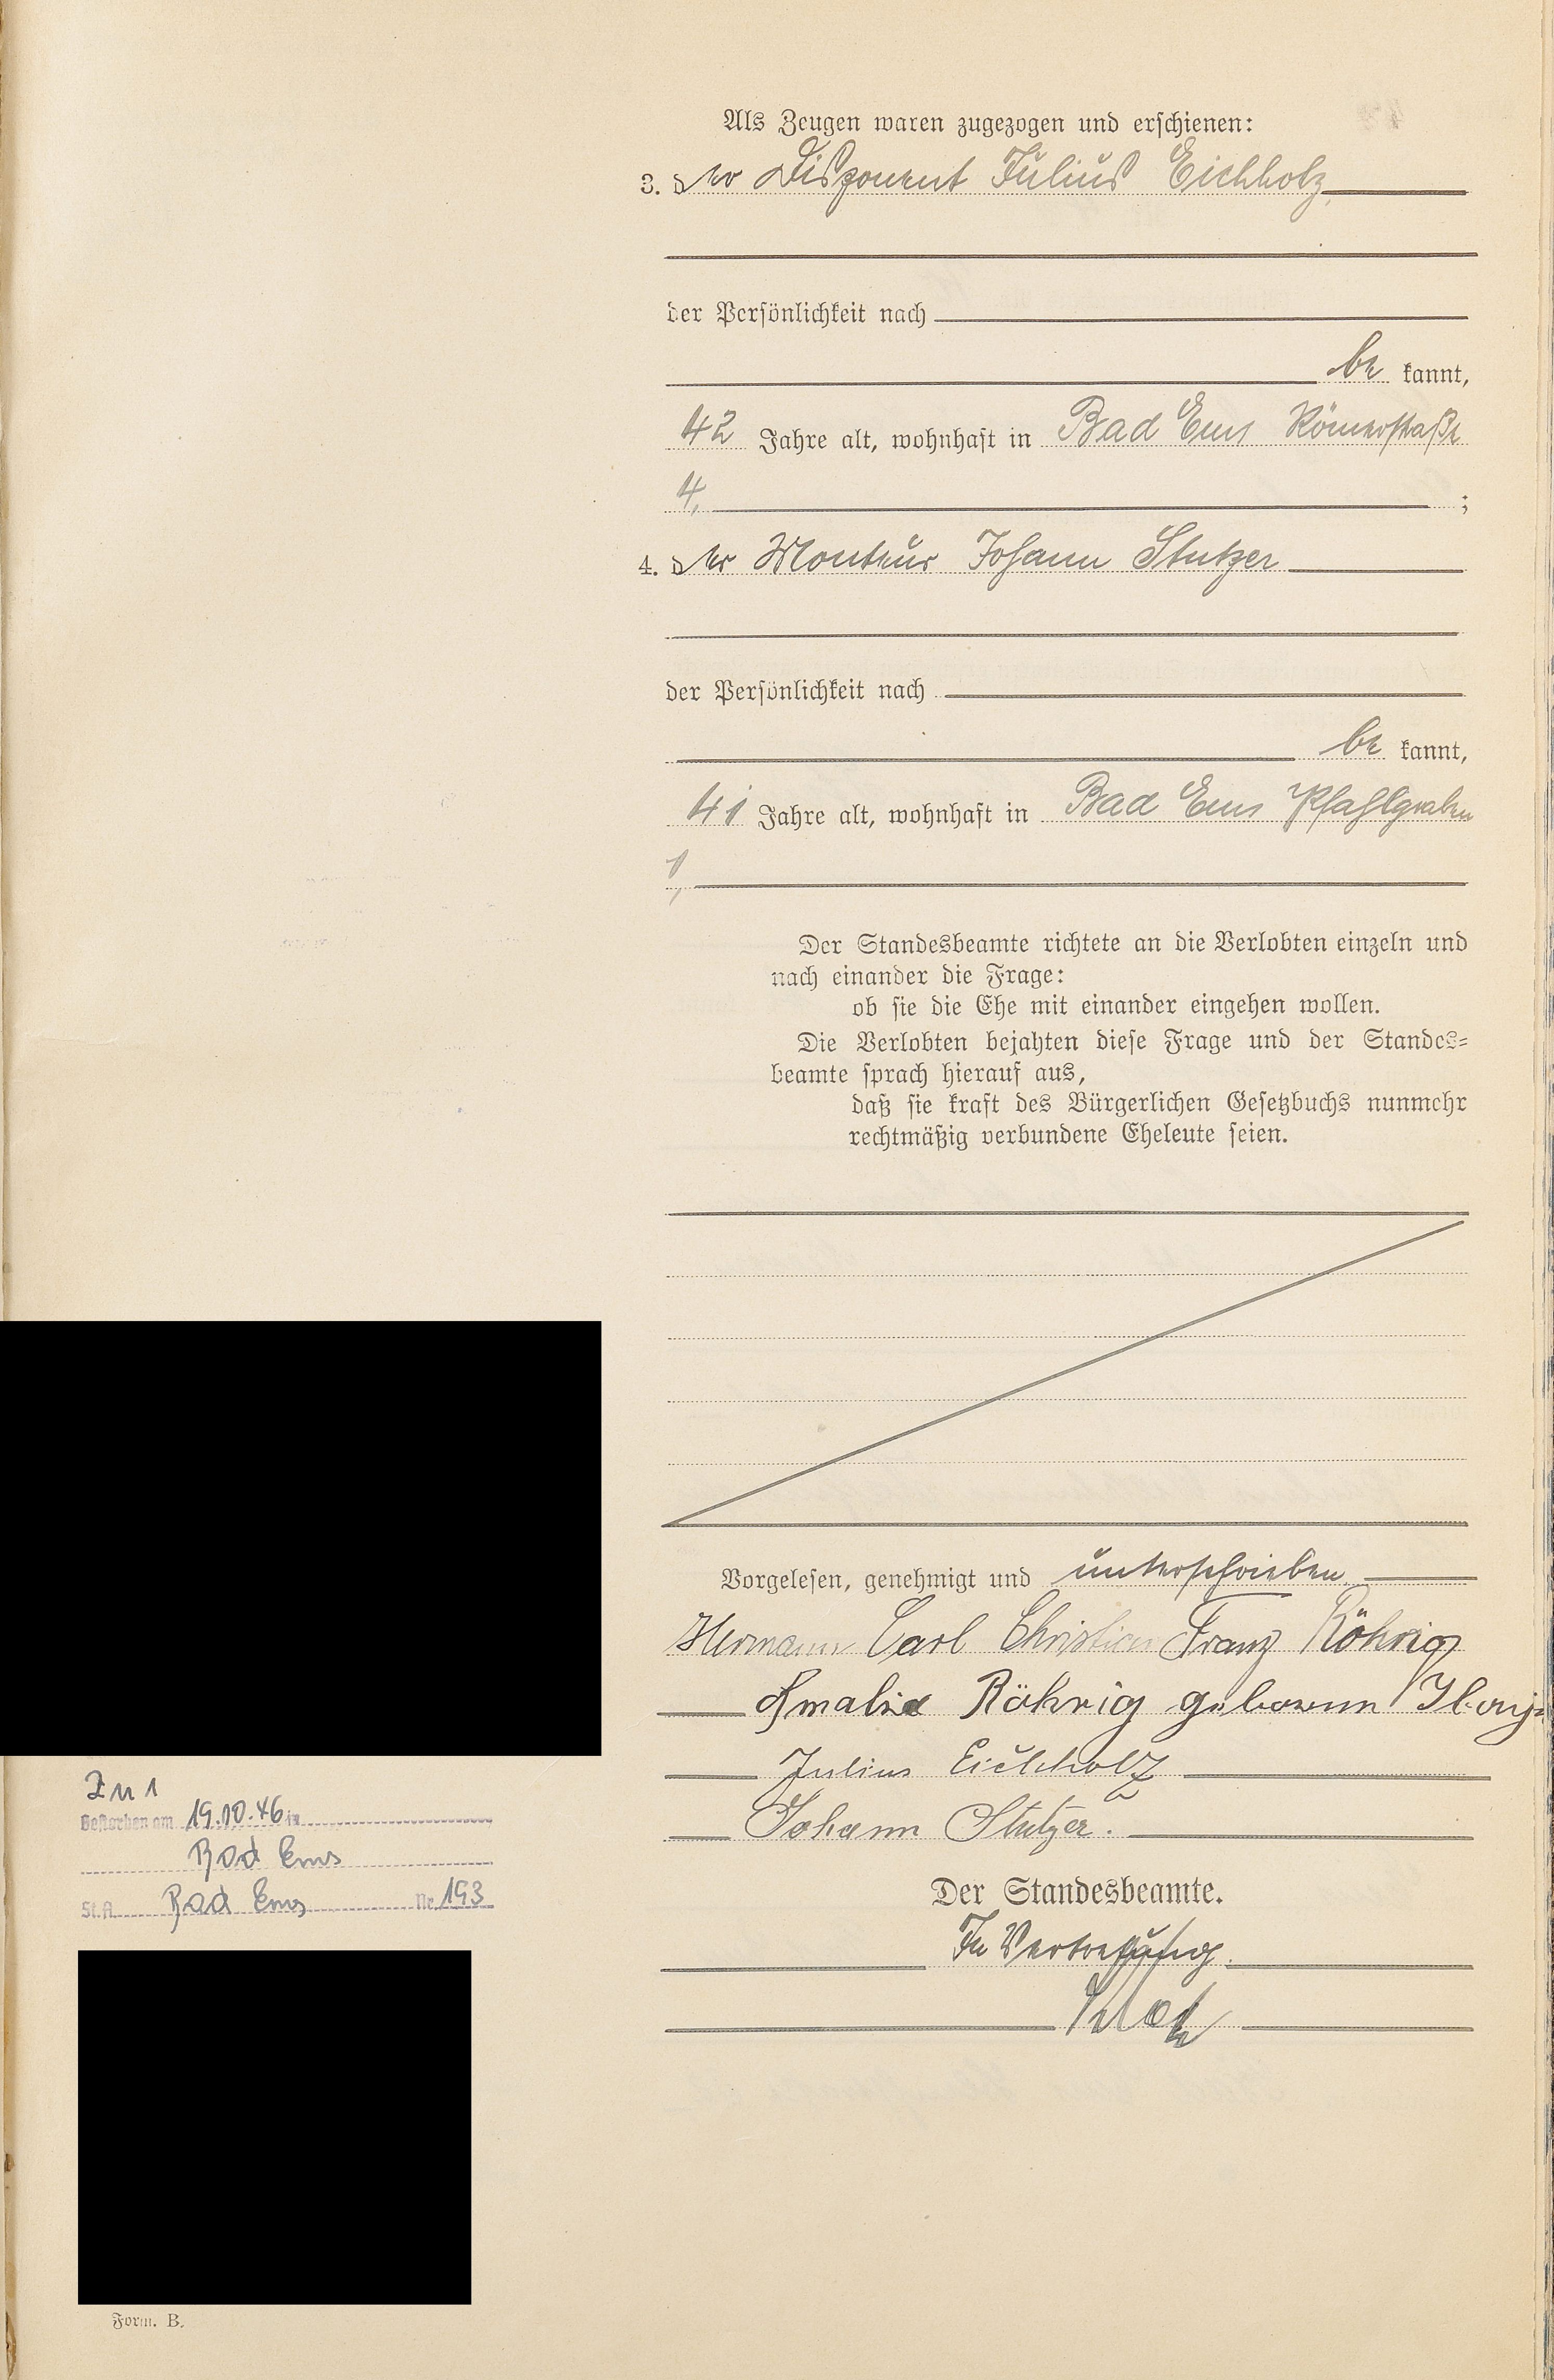 Als Zeugen waren zugezogen und erschienen:
3. der Disponent Julius Eichholz
der Persönlichkeit nach
be kannt,
42 Jahre alt, wohnhaft in Bad Ems Römerstraße
4,
;
4. der Monteur Johann Stutzer
der Persönlichkeit nach
be kannt,
41 Jahre alt, wohnhaft in Bad Ems Pfahlgraben
1,
Der Standesbeamte richtete an die Verlobten einzeln und
nach einander die Frage:
ob sie die Ehe mit einander eingehen wollen.
Die Verlobten bejahten diese Frage und der Standes=
beamte sprach hierauf aus,
daß sie kraft des Bürgerlichen Gesetzbuchs nunmehr
rechtmäßig verbundene Eheleute seien.
Vorgelesen, genehmigt und unterschrieben
Hermann Carl Christian Franz Röhrig
Amalie Röhrig geborenn
Julius Eichholz
Johann Stutzer.
Der Standesbeamte.
In Vertretung.
Zu 1
Gestorben am 19.10.46 in
Bad Ems
St.A. Bad Ems Nr. 193
Form. B.